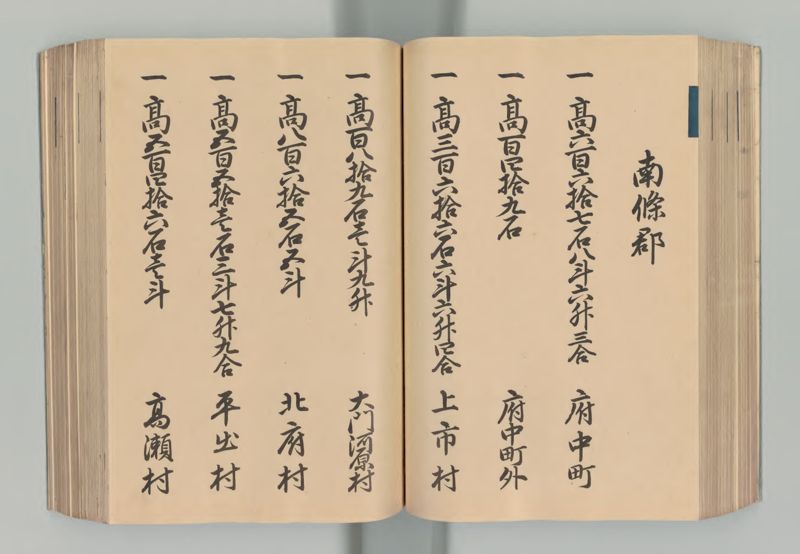 南條郡
一 高六百六拾七石八斗六升三合 府中町
一 高百四拾九石 府中町外
一 高三百六拾六石六斗六升四合 上市村
一 高百八拾九石壱斗九升 大門河原村
一 高八百六拾五石五斗 北府村
一 高五百五拾壱石三斗七升九合 平出村
一 高五百四拾六石壱斗 高瀬村